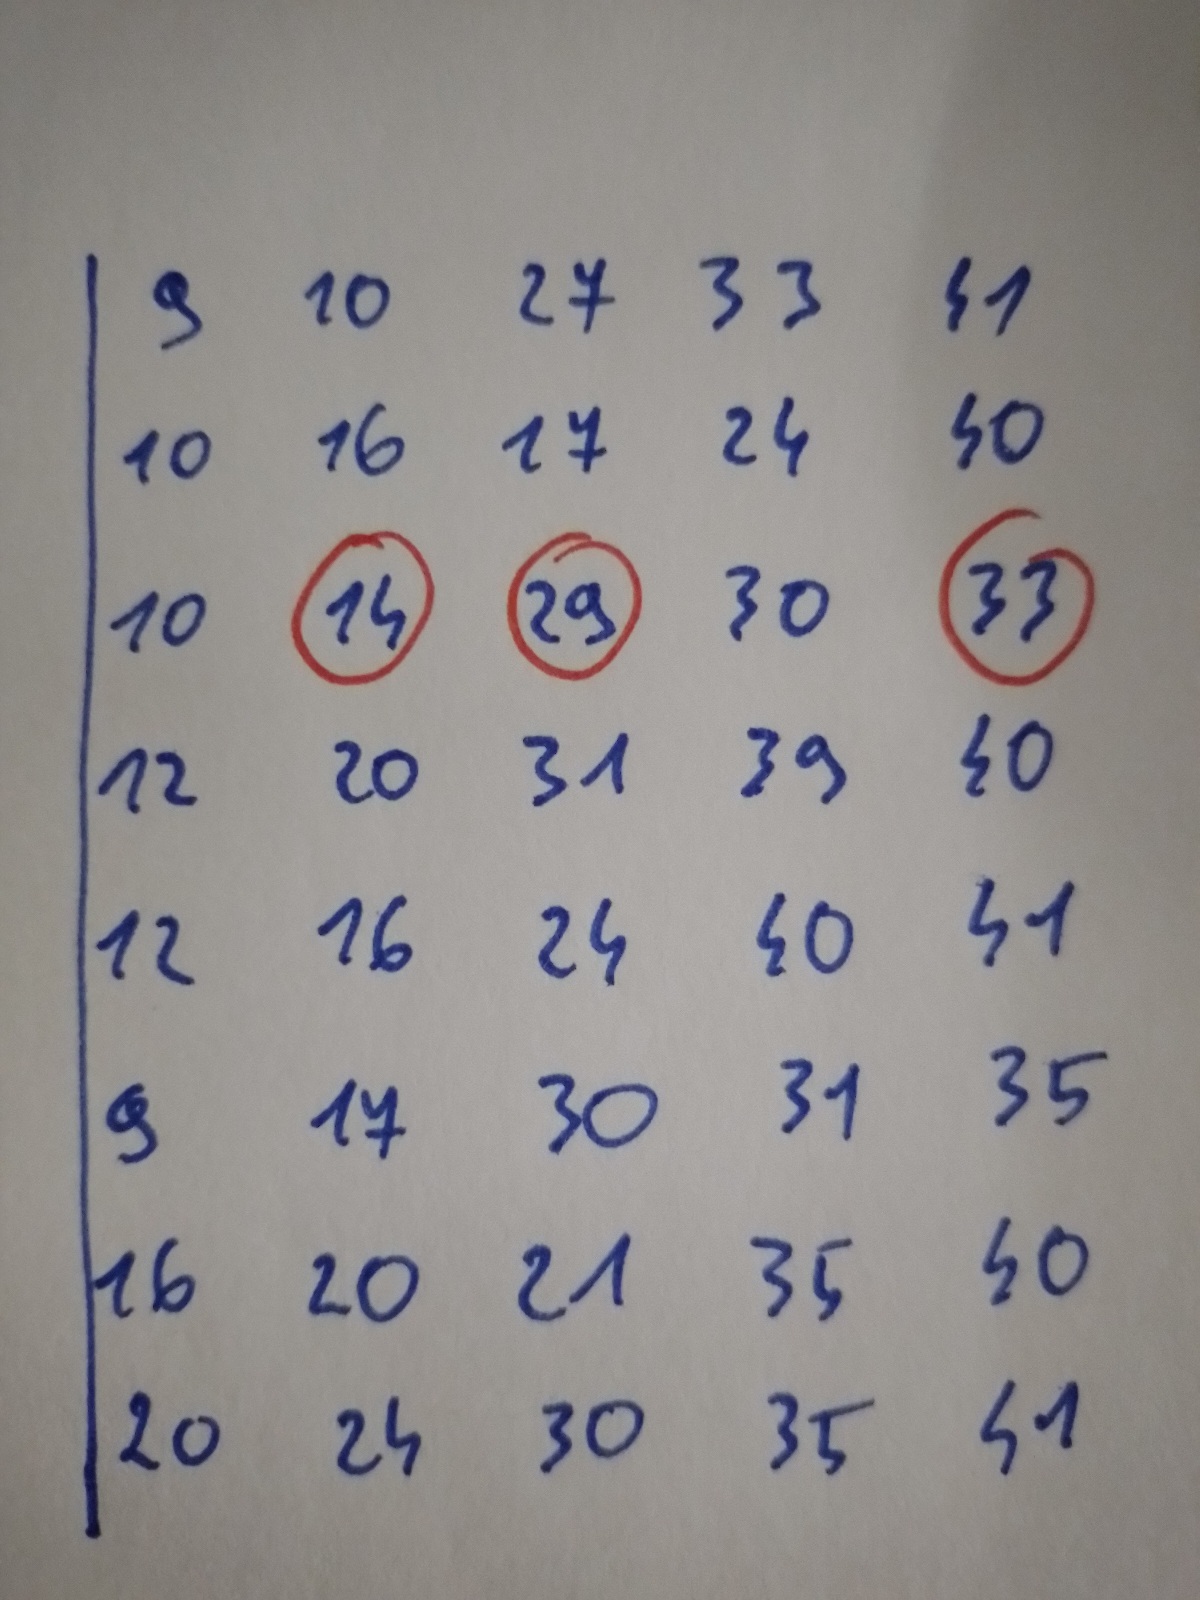 9 10 27 33 41
10 16 17 24 40
10 14 29 30 33
12 20 31 39 40
12 16 24 40 41
9 17 30 31 35
16 20 21 35 40
20 24 30 35 41